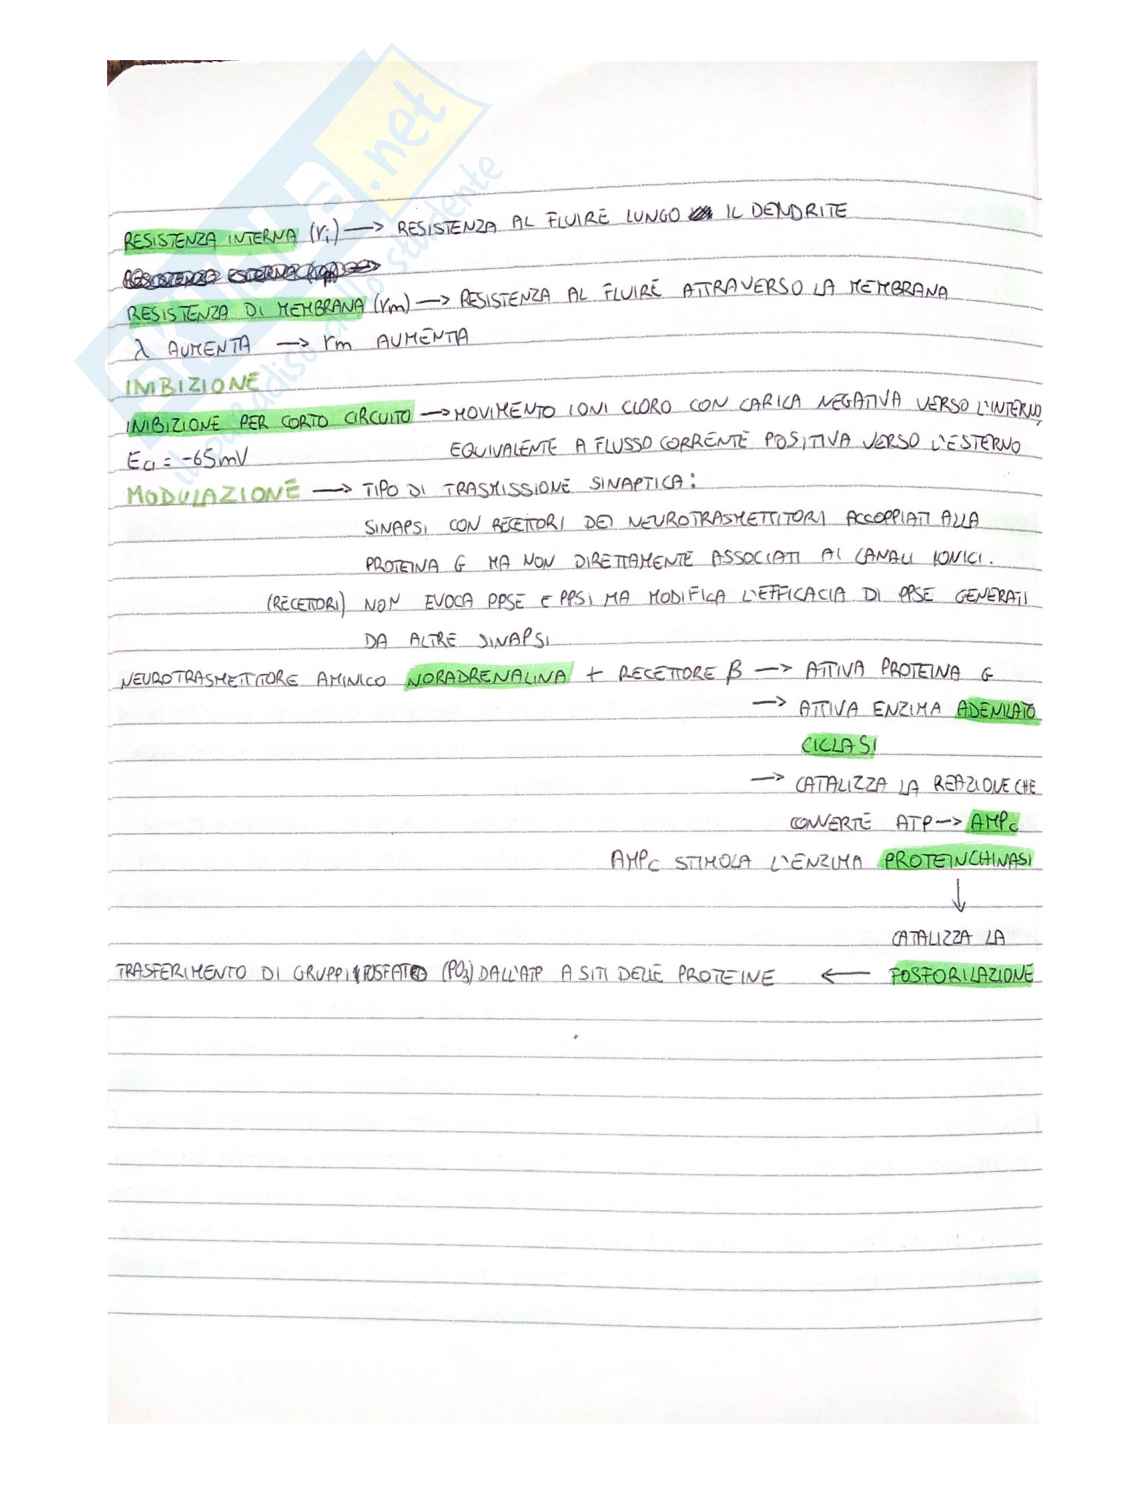 RESISTENZA INTERNA (ri) → RESISTENZA AL FLUIRE LUNGO IL DENDRITE
RESISTENZA DI MEMBRANA (rm) → RESISTENZA AL FLUIRE ATTRAVERSO LA MEMBRANA
λ AUMENTA → rm AUMENTA
INIBIZIONE
INIBIZIONE PER CORTO CIRCUITO → MOVIMENTO IONI CLORO CON CARICA NEGATIVA VERSO L'INTERNO,
EQUIVALENTE A FLUSSO CORRENTE POSITIVA VERSO L'ESTERNO
ECl = -65mV
MODULAZIONE → TIPO DI TRASMISSIONE SINAPTICA:
SINAPSI CON RECETTORI DEI NEUROTRASMETTITORI ACCOPPIATI ALLA
PROTEINA G MA NON DIRETTAMENTE ASSOCIATI AI CANALI IONICI.
(RECETTORI) NON EVOCA PPSE E PPSI MA MODIFICA L'EFFICACIA DI PPSE GENERATI
DA ALTRE SINAPSI
NEUROTRASMETTITORE AMINICO NORADRENALINA + RECETTORE β → ATTIVA PROTEINA G
→ ATTIVA ENZIMA ADENILATO
CICLASI
→ CATALIZZA LA REAZIONE CHE
CONVERTE ATP → AMPc
AMPc STIMOLA L'ENZIMA PROTEINCHINASI
↓
CATALIZZA LA
TRASFERIMENTO DI GRUPPI FOSFATO (PO3) DALL'ATP A SITI DELLE PROTEINE ← FOSFORILAZIONE
.net